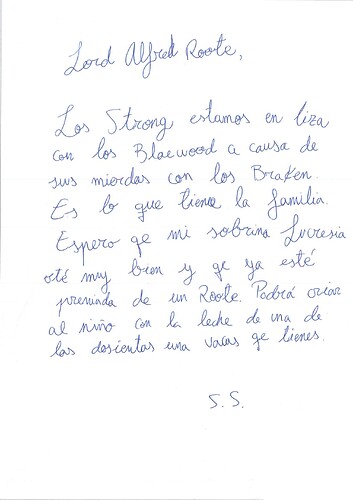 Lord Alfred Roote,
Los Strong estamos en liza
con los Blaewood a causa de
sus mierdas con los Braken.
Es lo que tiene la familia.
Espero qe mi sobrina Lucresia
esté muy bien y qe ya esté
preniada de un Roote. Podrá criar
al niño con la leche de una de
las dosientas una vacas qe tienes.
S.S.